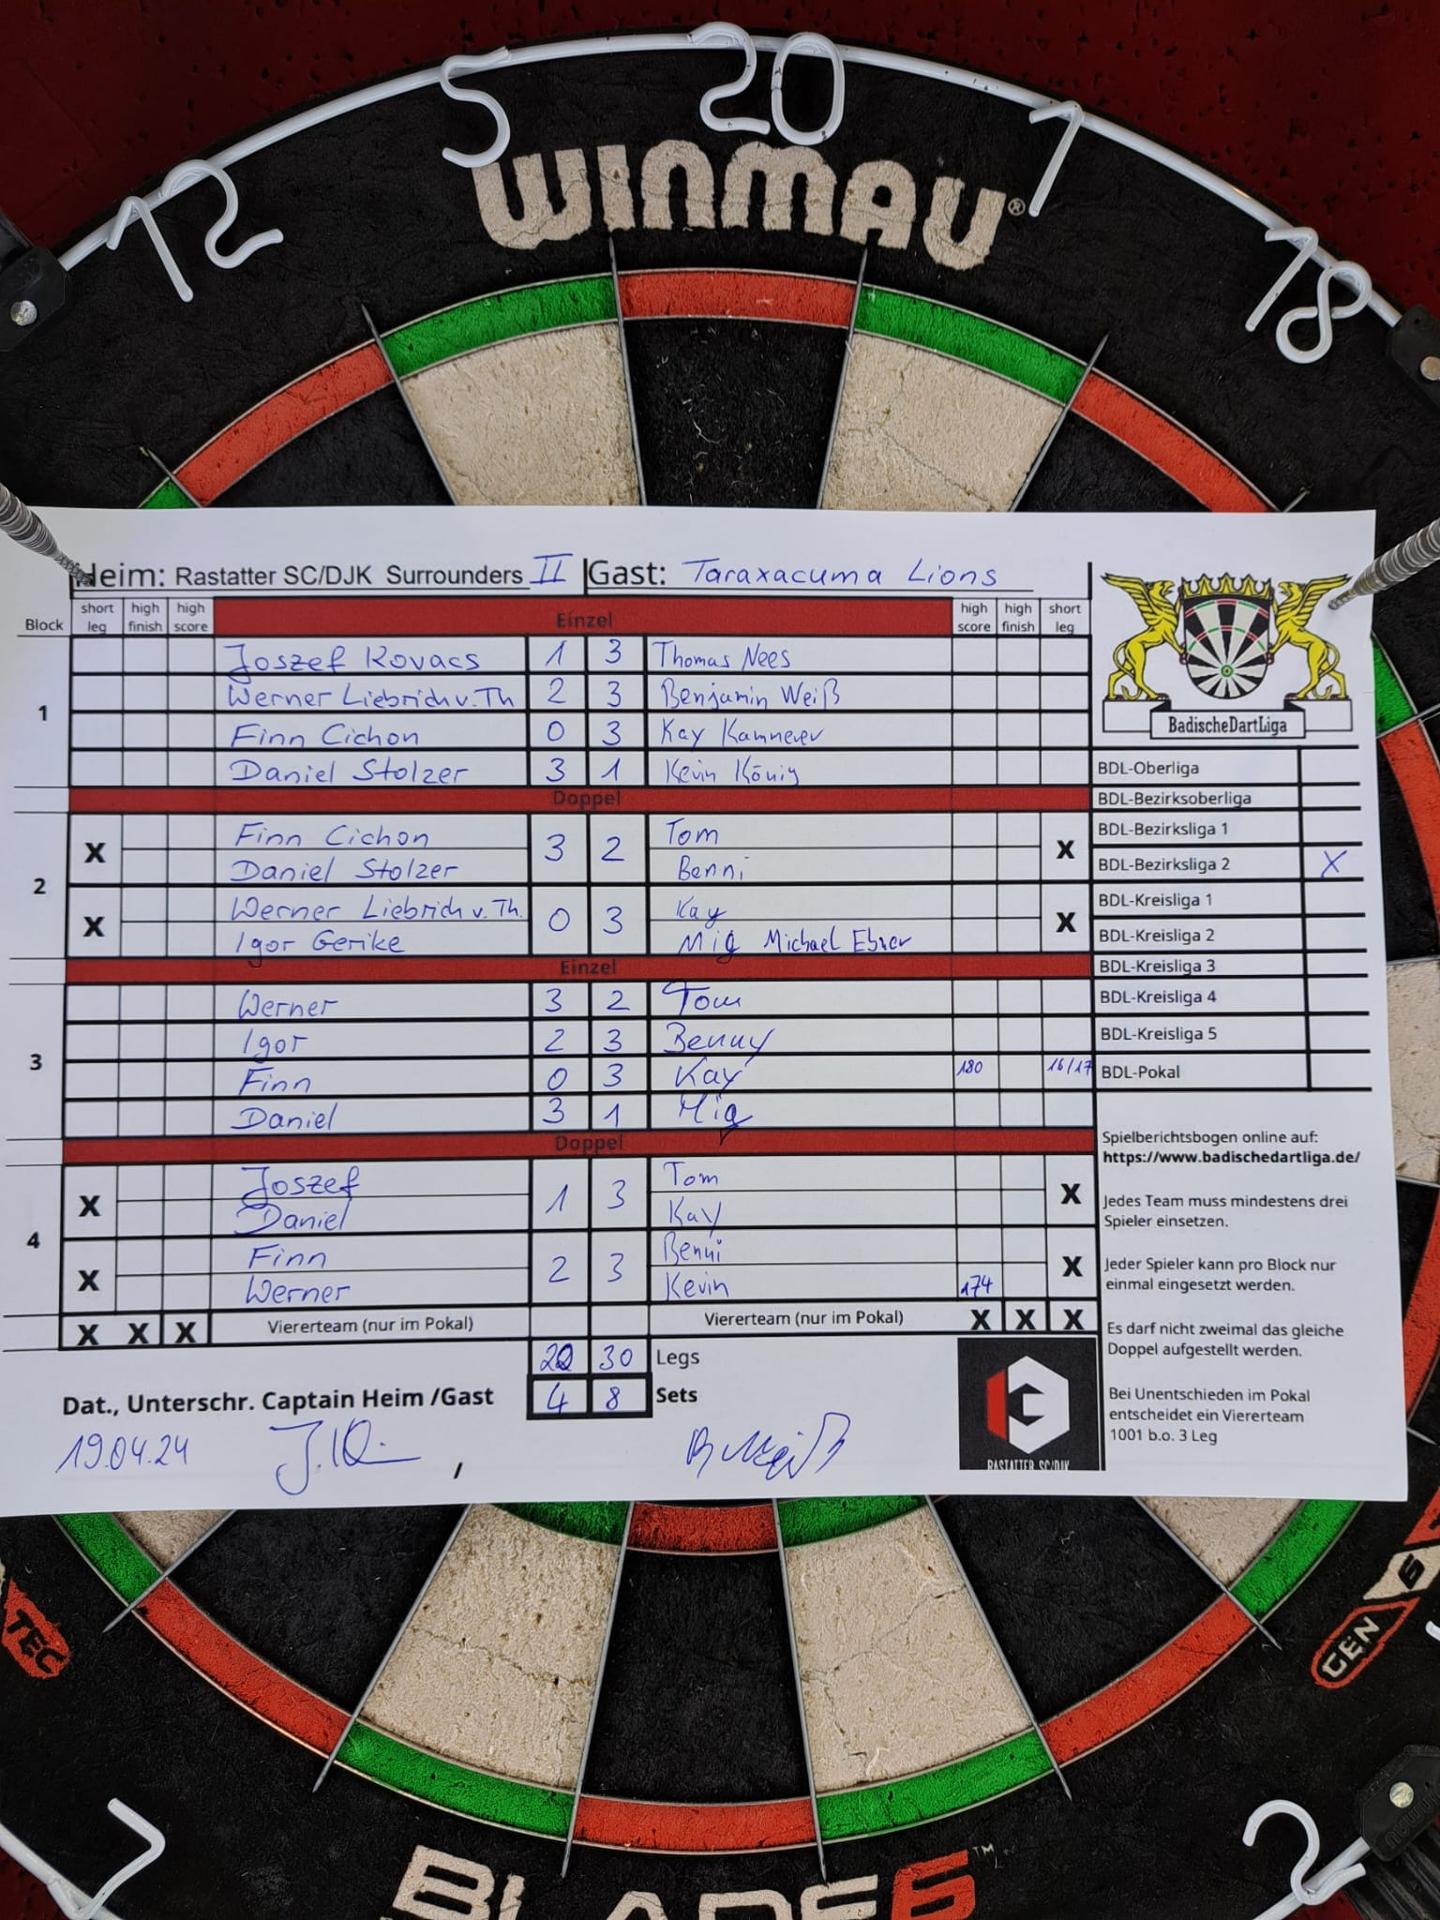 5 20 1
12 18
WINMAU®
Heim: Rastatter SC/DJK Surrounders II Gast: Taraxacuma Lions
Block short leg high finish high score Einzel high score high finish short leg
Joszef Kovacs 1 3 Thomas Nees
Werner Liebrich v. Th 2 3 Benjamin Weiß
1
Finn Cichon 0 3 Kay Kammerer
Daniel Stolzer 3 1 Kevin König
Doppel
Finn Cichon Tom
X 3 2 X
Daniel Stolzer Benni
2
Werner Liebrich v. Th. Kay
X 0 3 X
Igor Gerike Mig Michael
Einzel
Werner 3 2 Tom
Igor 2 3 Benny
3
Finn 0 3 Kay 180 16/17
Daniel 3 1 Mig
Doppel
Joszef Tom
X 1 3 X
Daniel Kay
4
Finn Benni
X 2 3 X
Werner Kevin 174
X X X Viererteam (nur im Pokal) Viererteam (nur im Pokal) X X X
30 Legs
4 8 Sets
Dat., Unterschr. Captain Heim /Gast
19.04.24 /
BadischeDartLiga
BDL-Oberliga
BDL-Bezirksoberliga
BDL-Bezirksliga 1
BDL-Bezirksliga 2 X
BDL-Kreisliga 1
BDL-Kreisliga 2
BDL-Kreisliga 3
BDL-Kreisliga 4
BDL-Kreisliga 5
BDL-Pokal
Spielberichtsbogen online auf:
https://www.badischedartliga.de/
Jedes Team muss mindestens drei
Spieler einsetzen.
Jeder Spieler kann pro Block nur
einmal eingesetzt werden.
Es darf nicht zweimal das gleiche
Doppel aufgestellt werden.
Bei Unentschieden im Pokal
entscheidet ein Viererteam
1001 b.o. 3 Leg
RASTATTER SC/DJK
TEC
GEN 6
7 2
BLADE6™